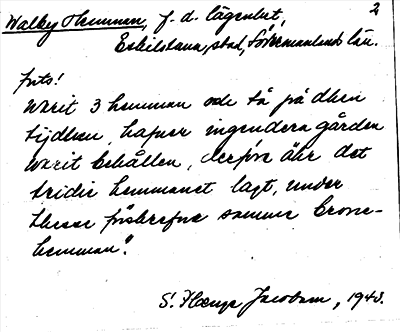 2
Walby Hemman, f. d. lägenhet,
Eskilstuna, stad, Södermanlands län.
Jnto!
Warit 3 hemman och tå på dhen
tijdhen, hafuer ingendera gården
warit behållen, derföre ähr det
tridie hemmanet lagt, under
thesse förskrefne samme Crono-
hemman".
S. Jacobson, 1943.